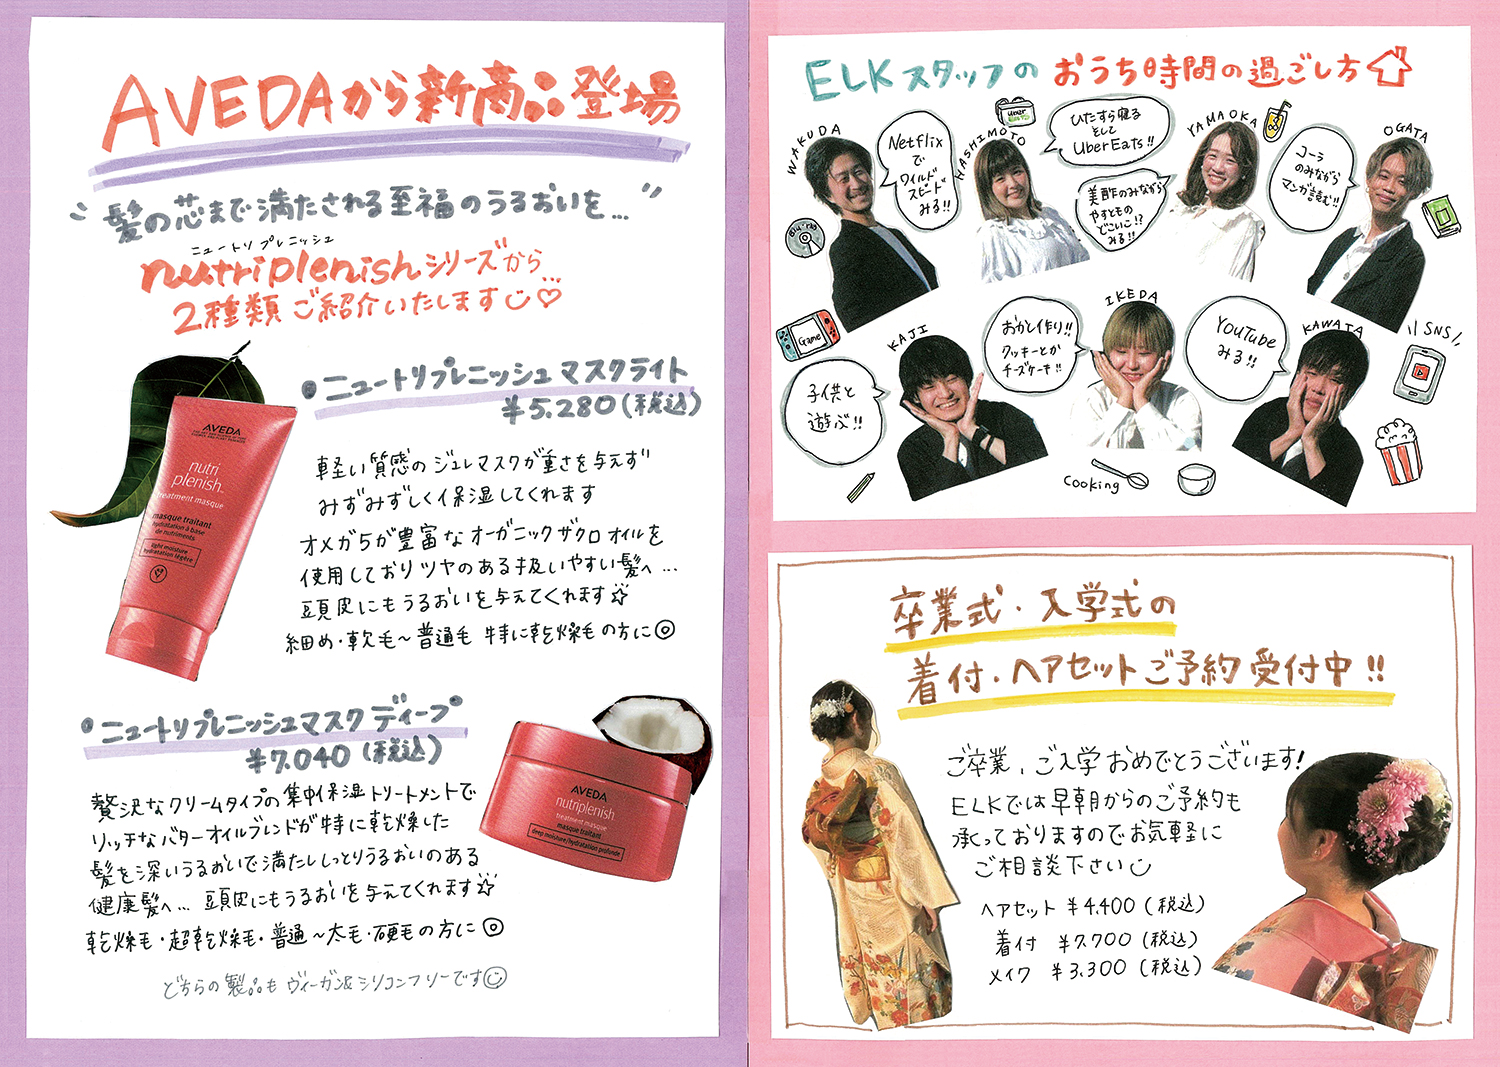 AVEDAから新商品登場
髪の芯まで満たされる至福のうるおいを…
ニュートリプレニッシュ
nutriplenishシリーズから…
2種類ご紹介いたします
・ニュートリプレニッシュマスクライト
¥5.280(税込)
軽い質感のジュレマスクが重さを与えず
みずみずしく保湿してくれます
オメガ5が豊富なオーガニックザクロオイルを
使用しておりツヤのある扱いやすい髪へ…
頭皮にもうるおいを与えてくれます☆
細め・軟毛～普通毛 特に乾燥毛の方に◎
AVEDA
nutri
plenish™
treatment masque
masque traitant
hydratation à base
de nutriments
light moisture
hydratation légère
・ニュートリプレニッシュマスクディープ
¥7.040(税込)
贅沢なクリームタイプの集中保湿トリートメントで
リッチなバターオイルブレンドが特に乾燥した
髪を深いうるおいで満たししっとりうるおいのある
健康髪へ… 頭皮にもうるおいを与えてくれます☆
乾燥毛・超乾燥毛・普通～太毛・硬毛の方に◎
AVEDA
nutriplenish
treatment masque
masque traitant
deep moisture/hydratation profonde
どちらの製品もヴィーガン&シリコンフリーです
ELKスタッフのおうち時間の過ごし方
WAKUDA
Netflix
で
ワイルド
スピード
みる!!
HASHIMOTO
Uber
Eats
ひたすら寝る
そして
UberEats!!
YAMAOKA
美酢のみながら
やすともの
どこいこ!?
みる!!
OGATA
コーラ
のみながら
マンガ読む!!
Blu-ray
Game
KAJI
子供と
遊ぶ!!
IKEDA
おかし作り!!
クッキーとか
チーズケーキ!!
KAWATA
YouTube
みる!!
\\SNS//
Cooking
卒業式・入学式の
着付・ヘアセットご予約受付中!!
ご卒業、ご入学おめでとうございます!
ELKでは早朝からのご予約も
承っておりますのでお気軽に
ご相談下さい
ヘアセット ¥4.400(税込)
着付 ¥7.700(税込)
メイク ¥3.300(税込)